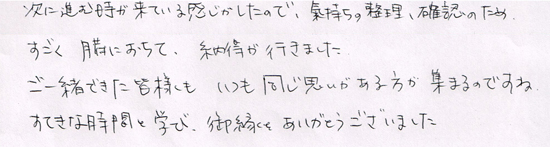 次に進む時が来ている感じがしたので、気持ちの整理、確認のため。
すごく 腑におちて、納得が行きました
ご一緒できた皆様も いつも 同じ思いがある方が 集まるのですね
すてきな時間と学び、御縁をありがとうございました